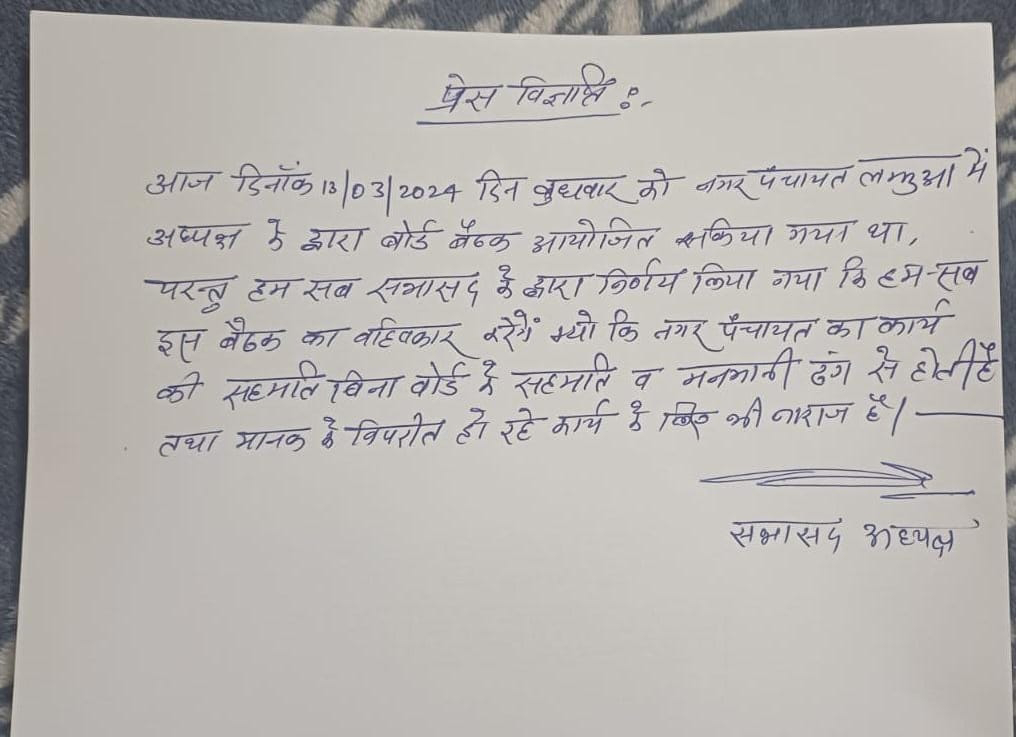 प्रेस विज्ञप्ति :-
आज दिनाँक 13/03/2024 दिन बुधवार को नगर पंचायत लम्भुआ में
अध्यक्ष के द्वारा बोर्ड बैठक आयोजित किया गया था,
परन्तु हम सब सभासद के द्वारा निर्णय लिया गया कि हम-सब
इस बैठक का वहिष्कार करेगें क्यो कि नगर पंचायत का कार्य
की सहमति बिना बोर्ड के सहमति व मनमानी ढंग से होती है
तथा मानक के विपरीत हो रहे कार्य के लिए भी नाराज है।
सभासद अध्यक्ष